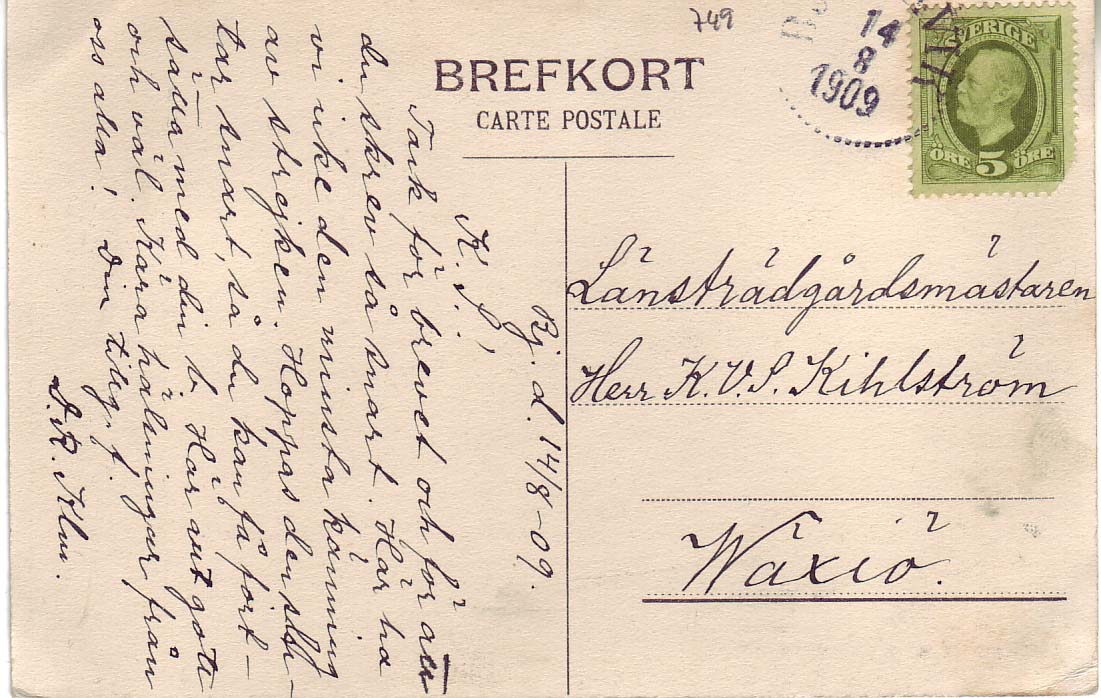 749
14
8
1909
SVERIGE
ÖRE 5 ÖRE
BREFKORT
CARTE POSTALE
Rj. d. 14/8-09.
K. S.!
Tack för brevet och för att
du skrev så snart. Här ha
vi icke den minsta känning
av strejken. Hoppas den slu-
tar snart, så du kan få fort-
sätta med din b. Här allt gott
och väl. Kära hälsningar från
oss alla! Din tillg. f.
Länsträdgårdsmästaren
Herr K.V.S. Kihlström
Wäxiö.